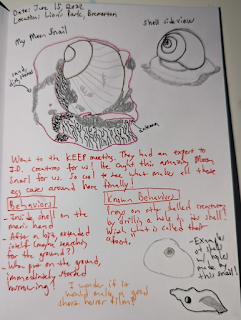 Date: June 15, 2022
Location: Lion's Park, Bremerton
My Moon Snail
shell side view
sand
Went to the KEEP meeting. They had an expert to
I.D. creatures for us! He caught this amazing Moon
Snail for us. So cool to see what makes all those
egg cases around here finally!
Behaviors
- Inside shell on the
man's hand
- After a bit, extended
itself (maybe searching
for the ground?)
- When put on the ground,
immediately started
burrowing!
Known Behaviors
Preys on other shelled creatures
by drilling a hole in its shell!
With what is called their
foot.
- Example
of shell
w/ hole
made by
this snail!
I wonder if it
would make a good
short horror film?